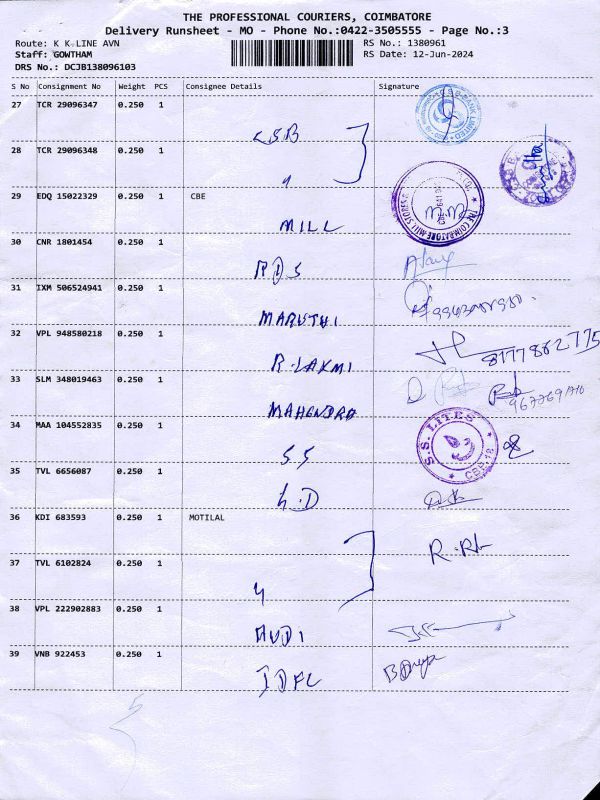 THE PROFESSIONAL COURIERS, COIMBATORE
Delivery Runsheet - MO - Phone No.:0422-3505555 - Page No.:3
Route: K K LINE AVN RS No.: 1380961
Staff: GOWTHAM RS Date: 12-Jun-2024
DRS No.: DCJB138096103
S No Consignment No Weight PCS Consignee Details Signature
27 TCR 29096347 0.250 1
CSB
28 TCR 29096348 0.250 1
29 EDQ 15022329 0.250 1 CBE
MILL
THE COIMBATORE MILL STORES
30 CNR 1801454 0.250 1
RDS
31 IXM 506524941 0.250 1
MARUTHI
32 VPL 948580218 0.250 1
R.LAXMI 8177862775
33 SLM 348019463 0.250 1
MAHENDRA
34 MAA 104552835 0.250 1
S.S. LITES
CBE-18
S S
35 TVL 6656087 0.250 1
L.D
36 KDI 683593 0.250 1 MOTILAL
37 TVL 6102824 0.250 1
38 VPL 222902883 0.250 1
AUDI
39 VNB 922453 0.250 1
IDFC